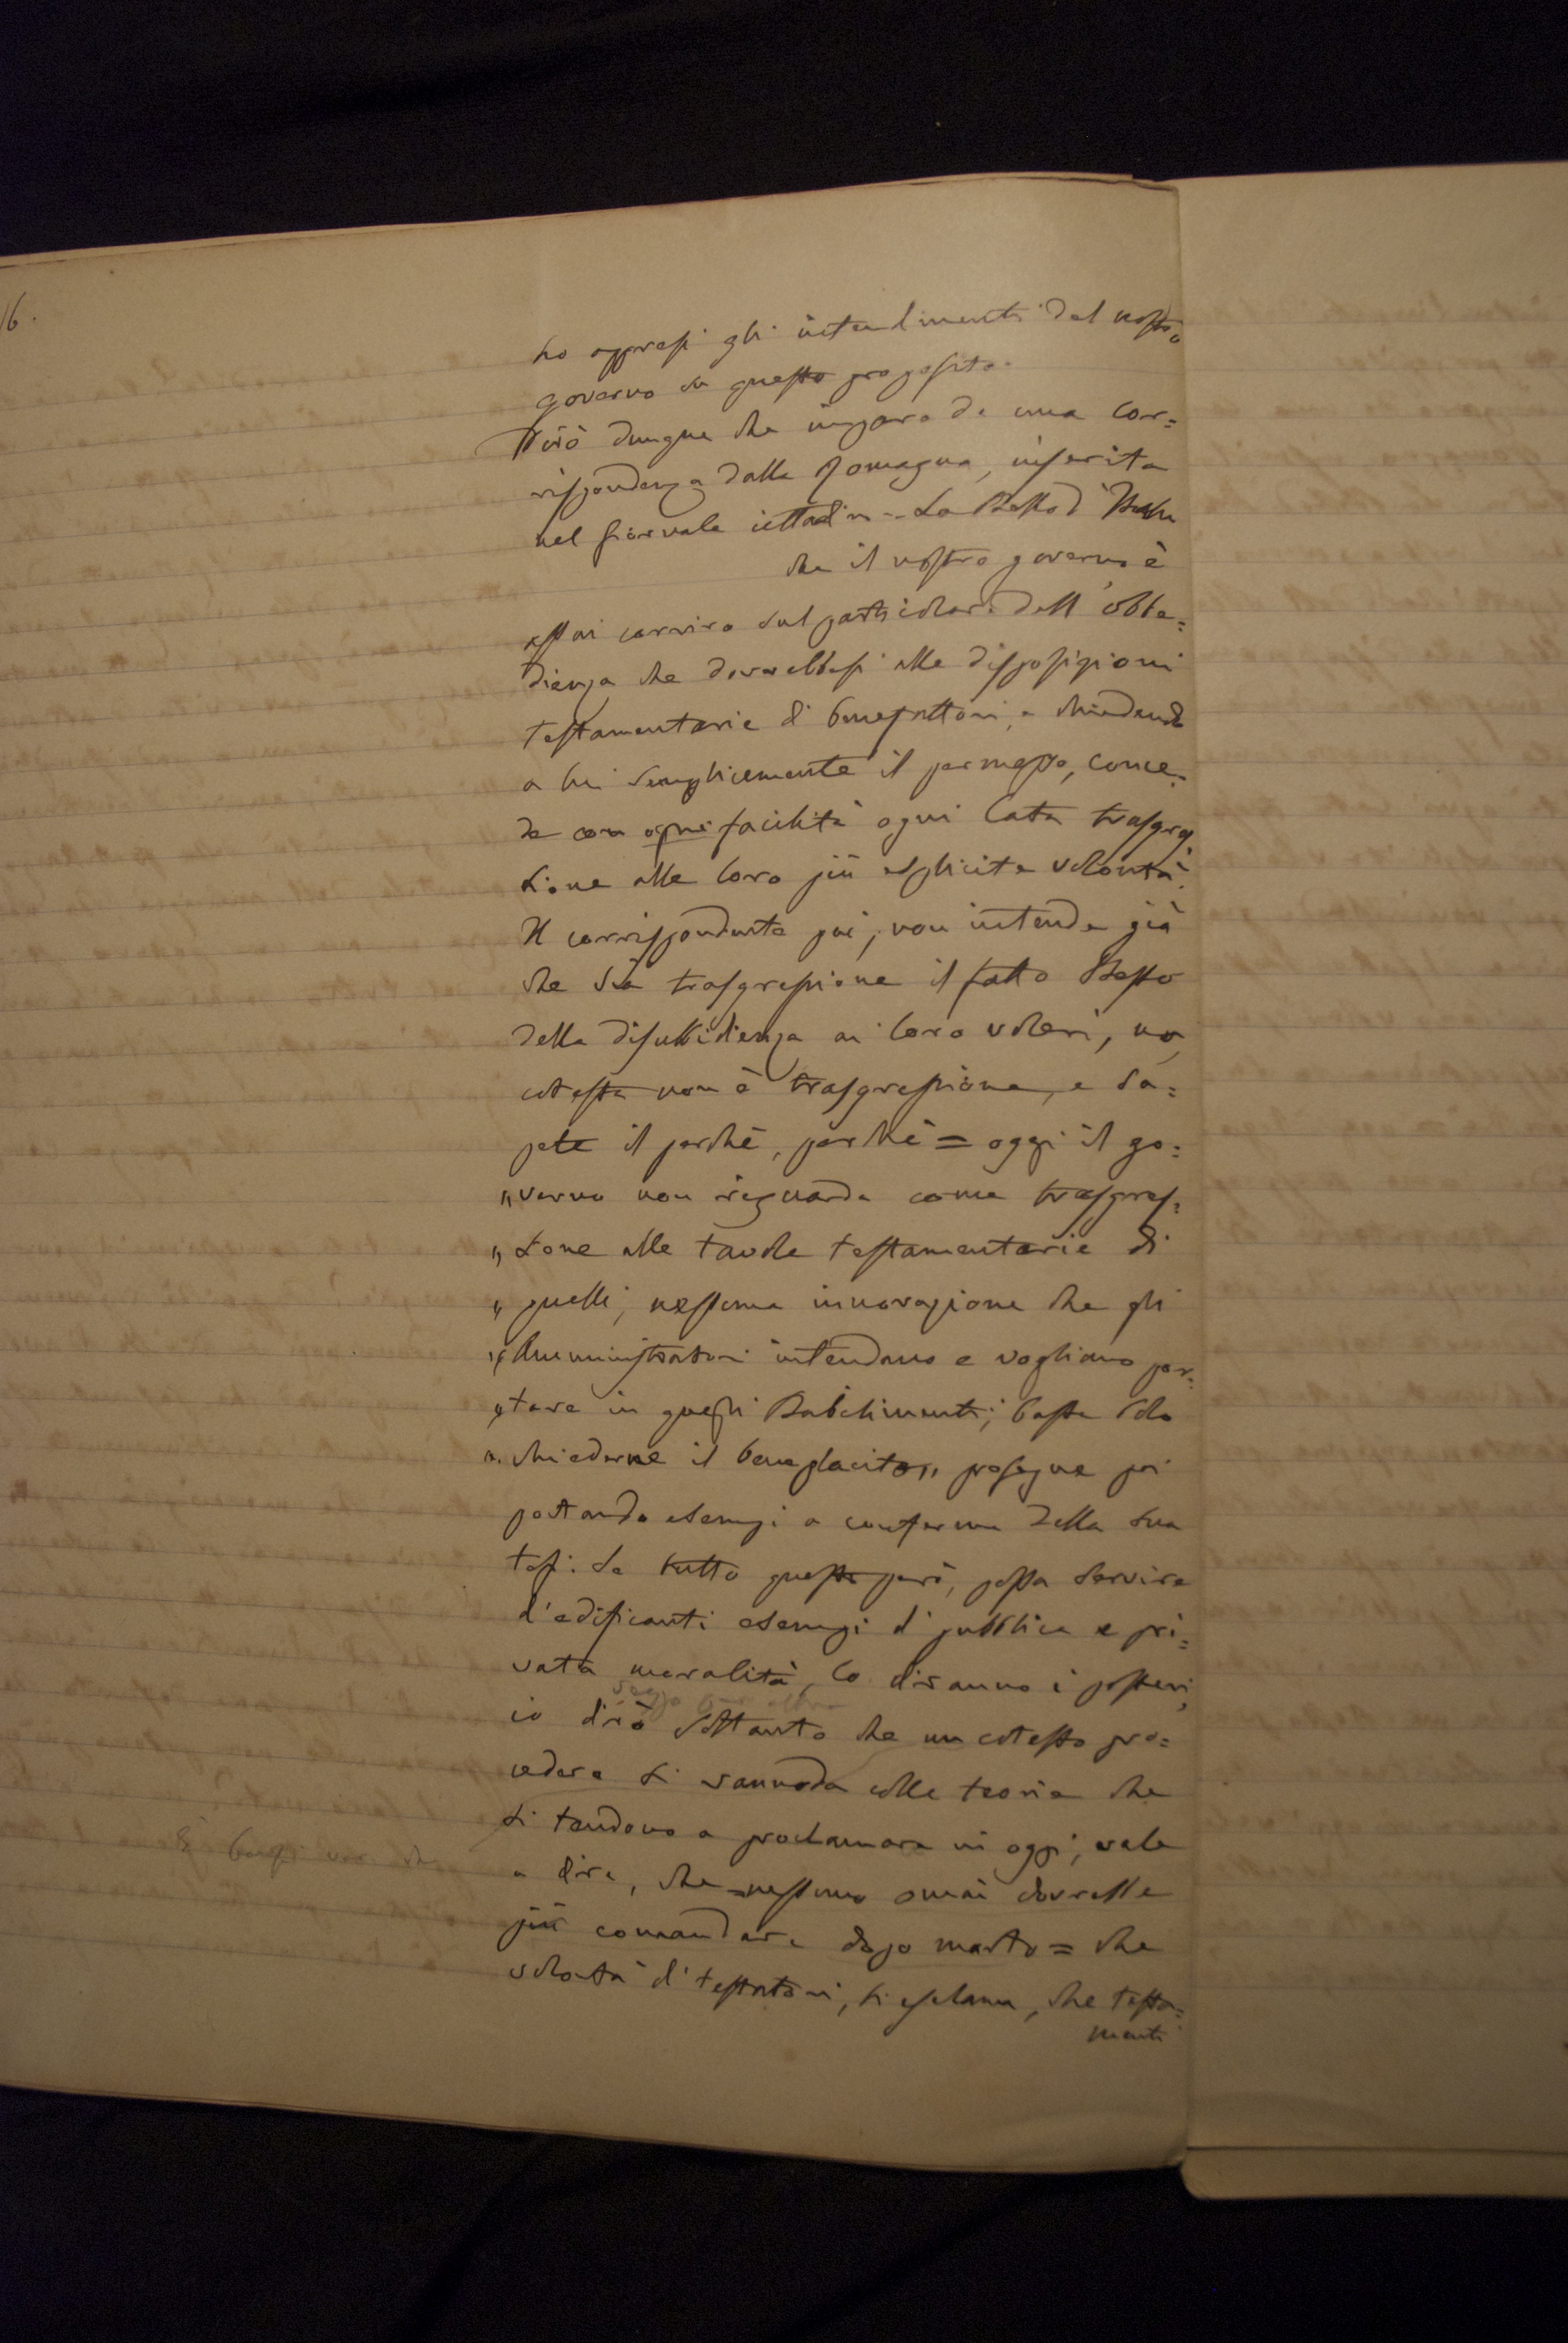 16.
ho appresi gli intendimenti del nostro
governo su questo proposito.
Dirò dunque che imparo da una cor=
rispondenza dalla Romagna, inserita
nel giornale cittadin - La Stella d'Italia
che il nostro governo è
assai corrivo sul particolare dell'obbe=
dienza che dovrebbesi alle disposizioni
testamentarie di benefattori, e chiedendo
a lui semplicemente il permesso, conce=
de con ogni facilità ogni lata trasgres
sione alle loro più esplicite volontà.
Il corrispondente poi, non intende già
che sia trasgressione il fatto stesso
della disubbidienza ai loro voleri, no,
cotesta non è trasgressione, e sa=
pete il perchè, perchè = oggi il go=
„ verno non riguarda come trasgres=
„ sione alle tavole testamentarie di
„ quelli, nessuna innovazione che gli
„ Amministratori intendano e vogliano por=
„ tare in quegli Stabilimenti; basta solo
„ chiederne il beneplacito „ prosegue poi
portando esempi a conferma della sua
tesi. Se tutto questo però, possa servire
d'edificanti esempi di pubblica e pri=
vata moralità, lo diranno i posteri,
io dirò soltanto che un cotesto pro=
cedere si rannoda colle teorie che
si tendono a proclamare in oggi, vale
a dire, che = nessuno omai dovrebbe
più comandare dopo morto = che
volontà di testatori, si esclama, che testa=
menti